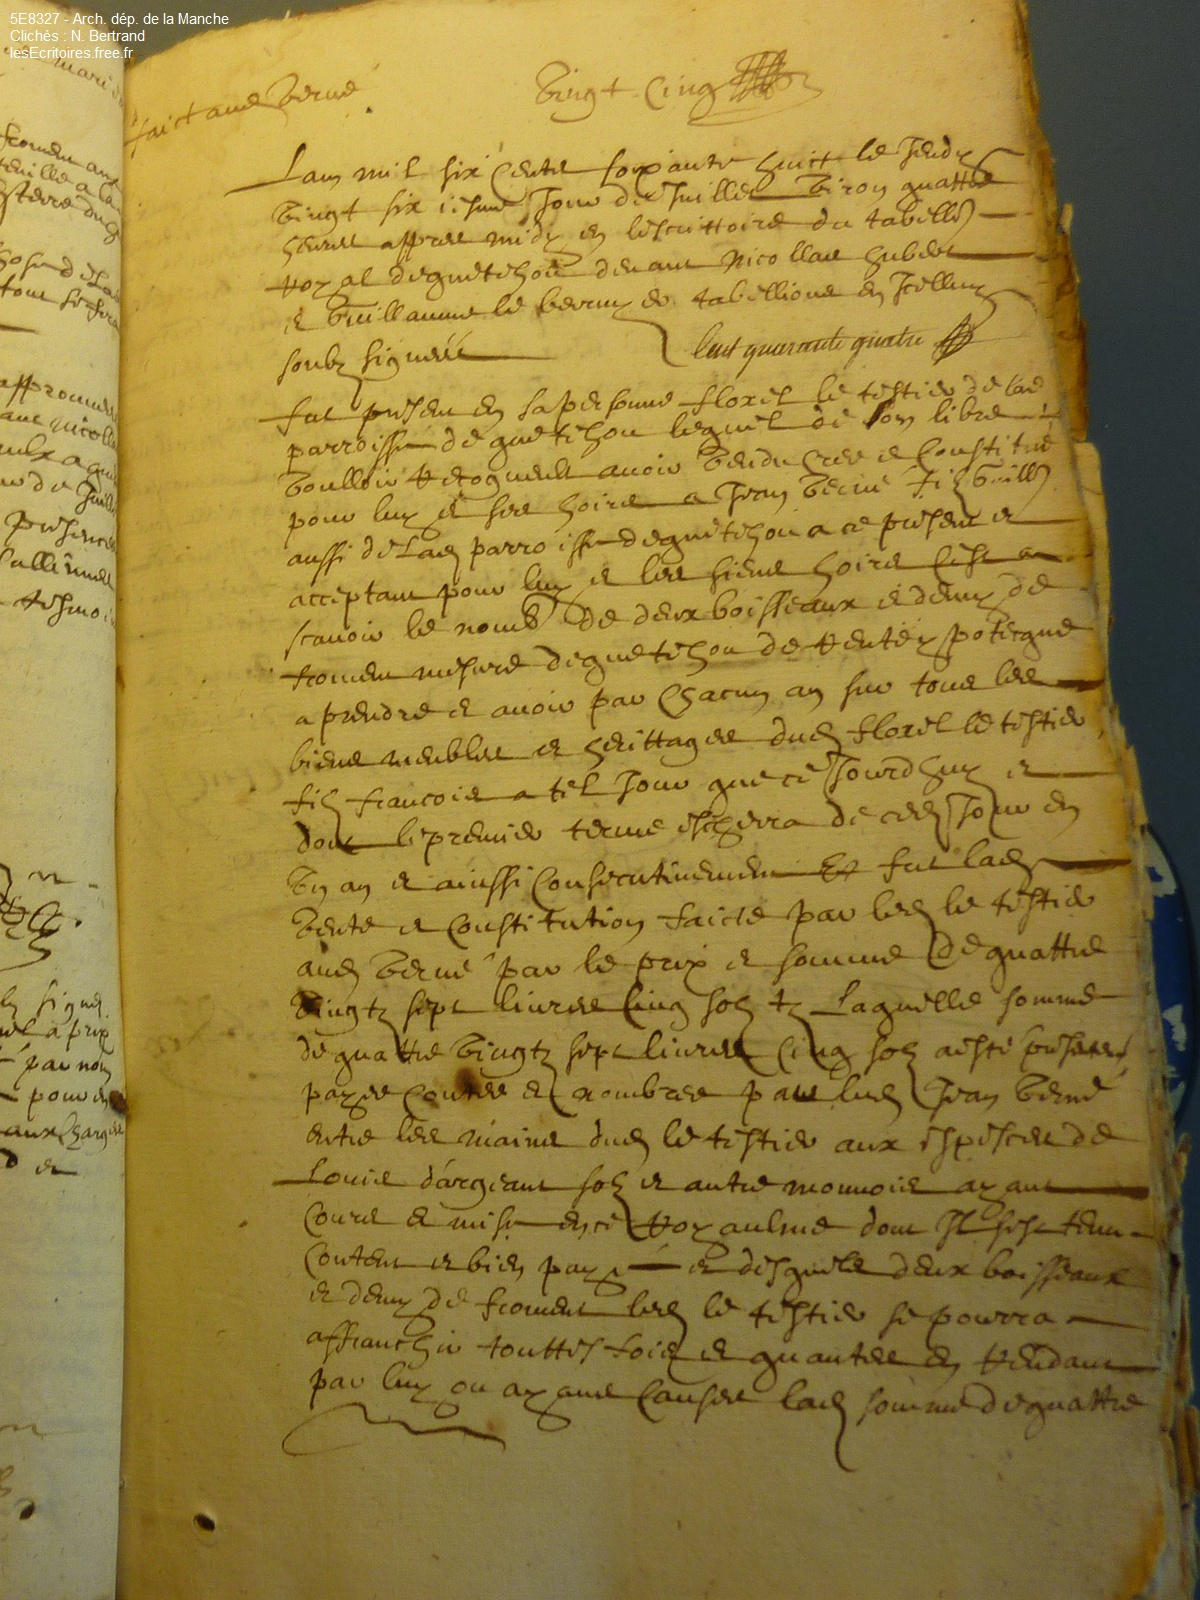 5E8327 - Arch. dép. de la Manche
Clichés : N. Bertrand
lesEcritoires.free.fr
faict aud verné
vingt cinq
Lan mil six cents soixante huict le Jeudy
vingt six iesme Jour de Juillet viron quattre
heures appres midy en lescrittoire du tabell
royal de quetehou devant Nicollas hubert
et Guillaume le berruyer tabellions en Icelluy
soubz signées
Cent quarante quatre
fut present en sa personne florel le testier de lad
parroisse de quetehou lequel de son libre
voulloir recognut avoir vendu cree et Constitué
pour luy et ses hoirs a Jean verné filz Guill
aussi de lad parroisse de quetehou a ce present et
acceptant pour luy et les siens hoirs Cest a
scavoir le nomb de deux boisseaux et demy de
froment mesure de quetehou de rente ypotecque
a prendre et avoir par Chacun an sur tous les
biens meubles et herittages dud florel le testier
filz francois a tel Jour que ce Jourdhuy et
dont le premier terme escherra de ced Jour en
un an et ainssi Consecutivement Et fut lad
vente et Constitution faicte par led le testier
aud verné par le prix et somme de quattre
vingtz sept livres Cinq solz tz Laquelle somme
de quattre vingtz sept livres Cinq solz a esté
payee Contee et nombree par led Jean verné
entre les mains dud le testier aux espesces de
Louis dargeant solz et autre monnoie ayant
Cours et mise en ce royaulme dont Il sest tenu
Content et bien payé et desquels deux boisseaux
et demy de froment led le testier se pourra
affranchir touttes fois et quantes en rendant
par luy ou ayans Causes lad somme de quattre